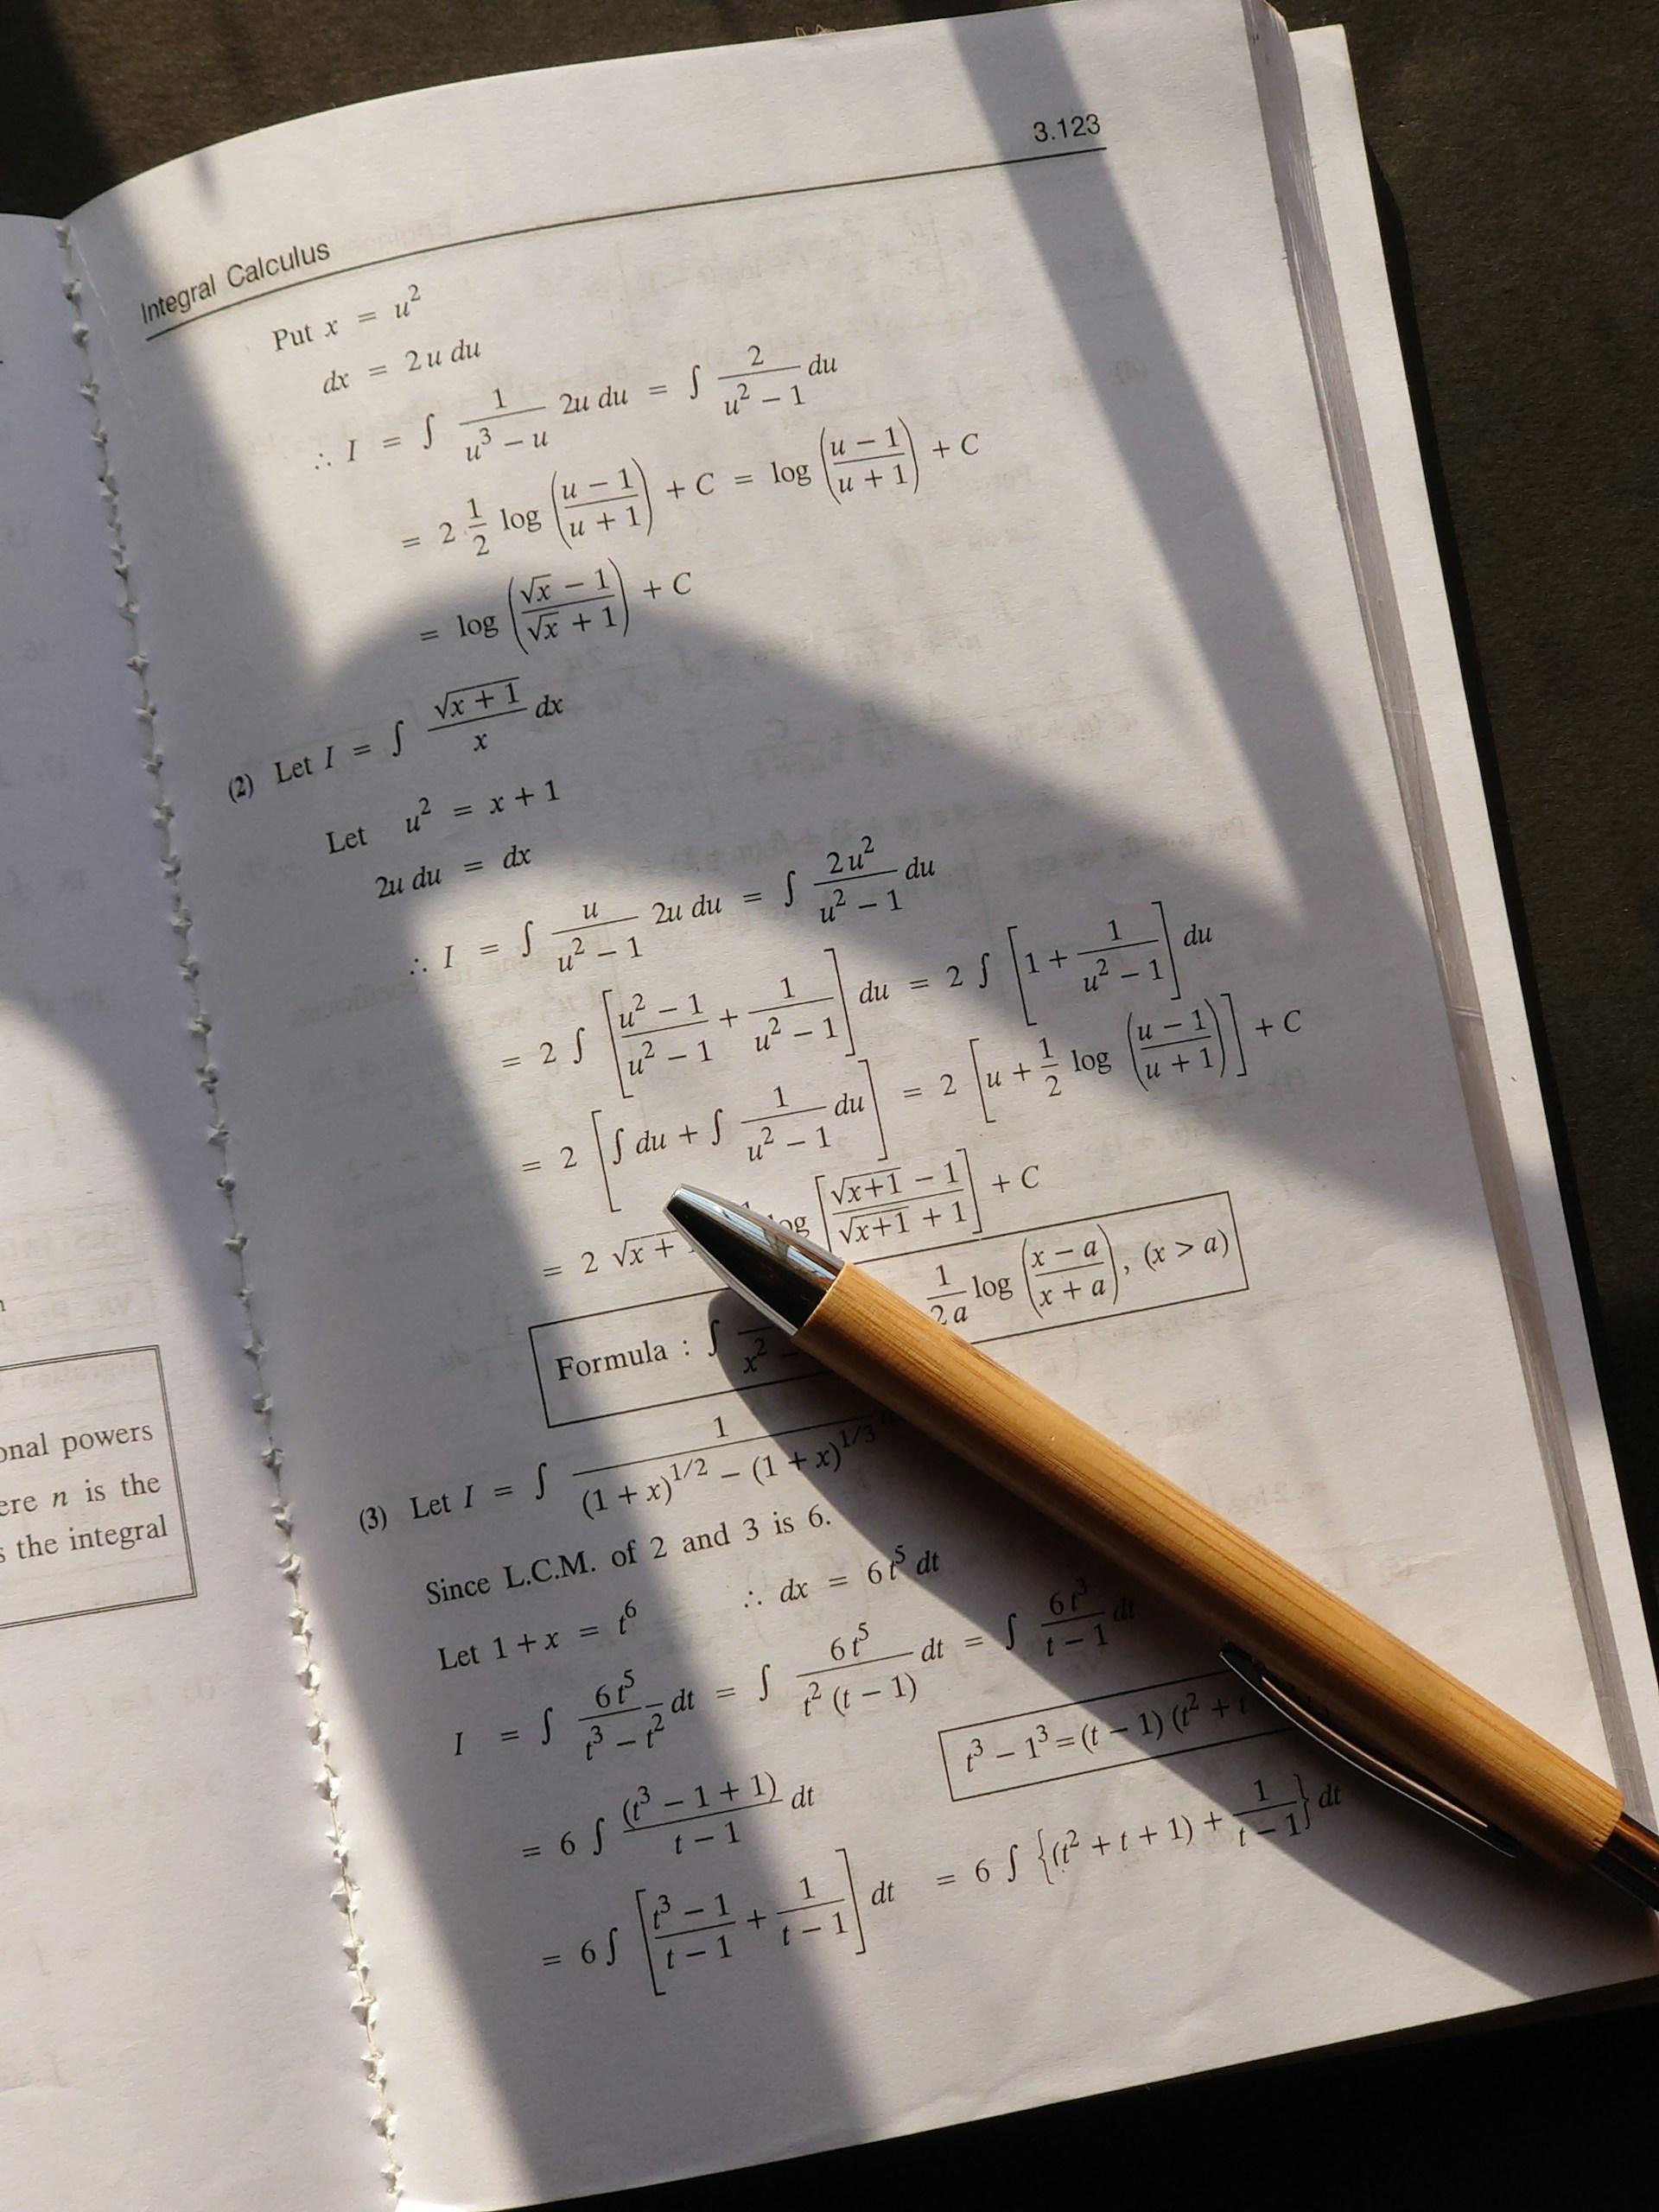 onal powers
ere n is the
s the integral
3.123
Integral Calculus
Put x = u²
dx = 2 u du
∴ I = ∫ 1/(u³ − u) 2u du = ∫ 2/(u² − 1) du
= 2 · 1/2 log ((u − 1)/(u + 1)) + C = log ((u − 1)/(u + 1)) + C
= log ((√x − 1)/(√x + 1)) + C
(2) Let I = ∫ √(x + 1)/x dx
Let u² = x + 1
2u du = dx
∴ I = ∫ u/(u² − 1) 2u du = ∫ 2 u²/(u² − 1) du
= 2 ∫ [(u² − 1)/(u² − 1) + 1/(u² − 1)] du = 2 ∫ [1 + 1/(u² − 1)] du
= 2 [∫ du + ∫ 1/(u² − 1) du] = 2 [u + 1/2 log ((u − 1)/(u + 1))] + C
= 2 √x + log [(√(x+1) − 1)/(√(x+1) + 1)] + C
Formula : ∫ x² − 1/(2 a) log ((x − a)/(x + a)), (x > a)
(3) Let I = ∫ 1/((1 + x)^1/2 − (1 + x)^1/3)
Since L.C.M. of 2 and 3 is 6.
Let 1 + x = t⁶ ∴ dx = 6 t⁵ dt
I = ∫ 6 t⁵/(t³ − t²) dt = ∫ 6 t⁵/(t² (t − 1)) dt = ∫ 6 t³/(t − 1) dt
t³ − 1³ = (t − 1) (t² + t
= 6 ∫ (t³ − 1 + 1)/(t − 1) dt
= 6 ∫ [(t³ − 1)/(t − 1) + 1/(t − 1)] dt = 6 ∫ {(t² + t + 1) + 1/(t − 1)} dt